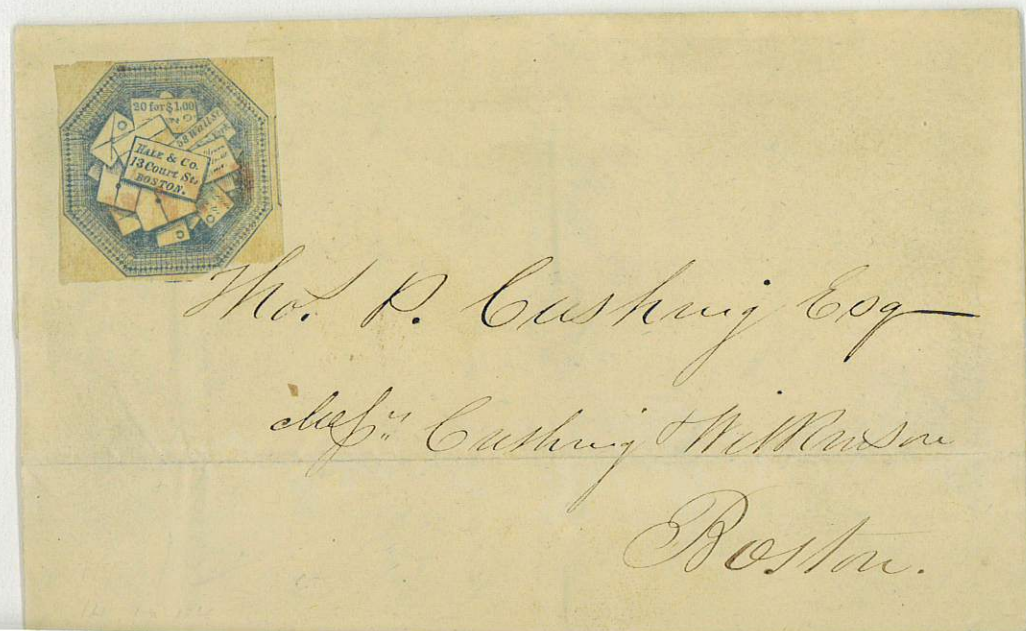 20 for $1.00
58 Wall St
HALE & CO.
13 Court St.
BOSTON.
Tho.s P. Cushing Esq
Mess.rs Cushing & Wilkinson
Boston.